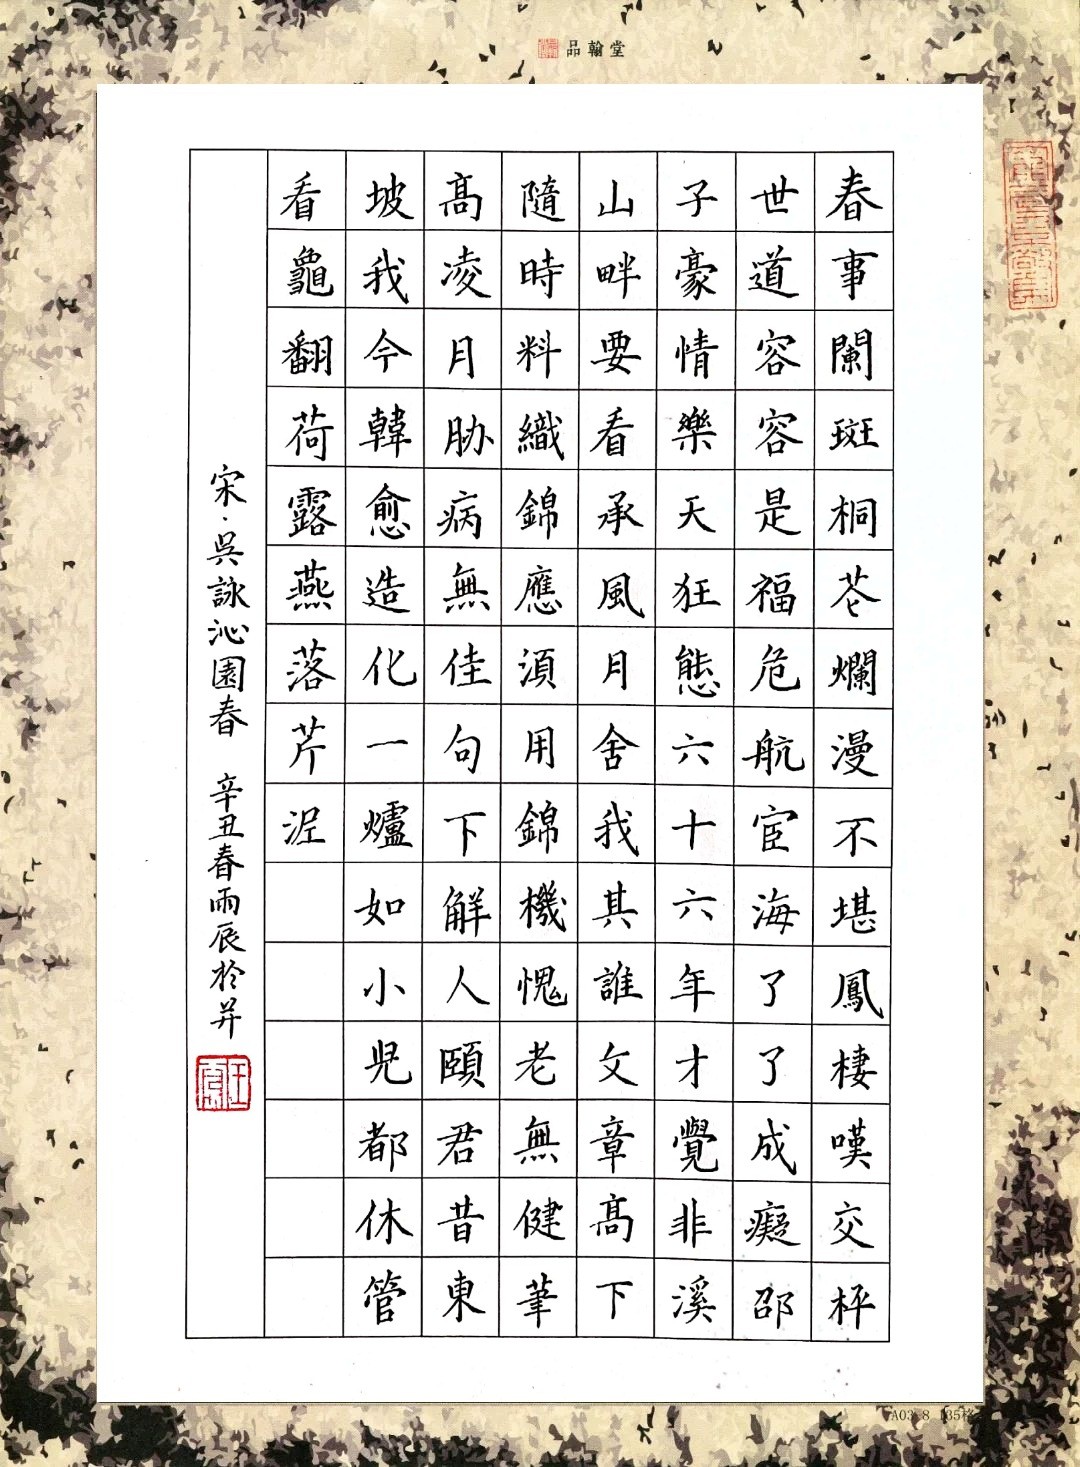 品翰堂
春事闌斑桐苍爛漫不堪鳳棲嘆交枰
世道容容是福危航宦海了了成癡邵
子豪情樂天狂態六十六年才覺非溪
山畔要看承風月舍我其誰文章高下
隨時料織錦應須用錦機愧老無健筆
高凌月胁病無佳句下解人頤君昔東
坡我今韓愈造化一爐如小兒都休管
看龜翻荷露燕落芹泥
宋·吳詠沁園春 辛丑春雨辰於并
A03 8 135格